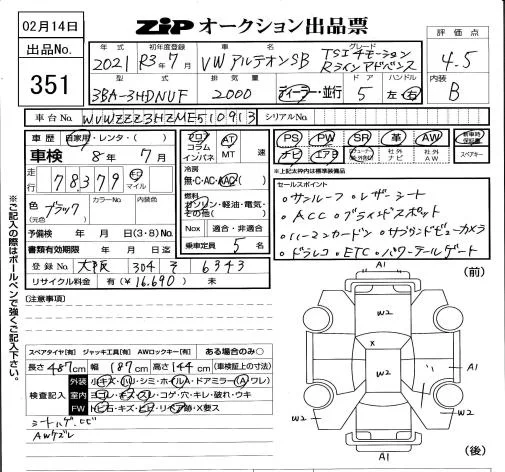 02月14日
ZIP オークション出品票
評価点
4.5
内装
B
出品No.
351
年式 初年度登録 車名 グレード
2021 R3年7月 VW アルテオンSB TSI エモーション Rラインアドバンス
型式 排気量 ドア ハンドル
3BA-3HDNUF 2000 ディーラー・並行 5 左・右
車台No. WVWZZZ3HZME510913 シリアルNo.
車歴 自家用・レンタ・( )
車検 8年7月
走行 78379 Km マイル
色(元色) ブラック カラーNo. 内装色
予備検 年 月 日(3・8)No.
書類有効期限 年 月 日迄
登録No. 大阪 304 そ 6343
リサイクル料金 有(¥16.690) 未
フロア コラム インパネ AT MT 速
冷房
無・C・AC・AAC
燃料
ガソリン・軽油・電気・その他( )
Nox 適合・非適合
乗車定員 5名
PS PW SR 革 AW 新車時保証書
ナビ エアB 社外ナビ 社外AW スペアキー
※上記太枠内は標準装備品
セールスポイント
・サンルーフ ・レザーシート
・ACC ・ブラインドスポット
・ハーマンカードン ・サラウンドビューカメラ
・ドラレコ ・ETC ・パワーテールゲート
※ご記入の際はボールペンで強くご記入下さい。
【注意事項】
スペアタイヤ【有】 ジャッキ工具【有】 AWロックキー【有】 ある場合のみ○
長さ487cm 幅187cm 高さ144cm(車検証上の寸法)
検査記入
外装 小キズ・ハリ・シミ・ホイルA・ドアミラー(A ワレ)
室内 ヨゴレ・キズ・スレ・コゲ・穴・キレ・破れ・ウキ
FW トビ石・キズ・ヒビ・リペア跡・X要ス
シートハゲ、ヒビ
AWケズレ
(前)
A1
W2
X
W2
A1
W2
W2
A1
(後)